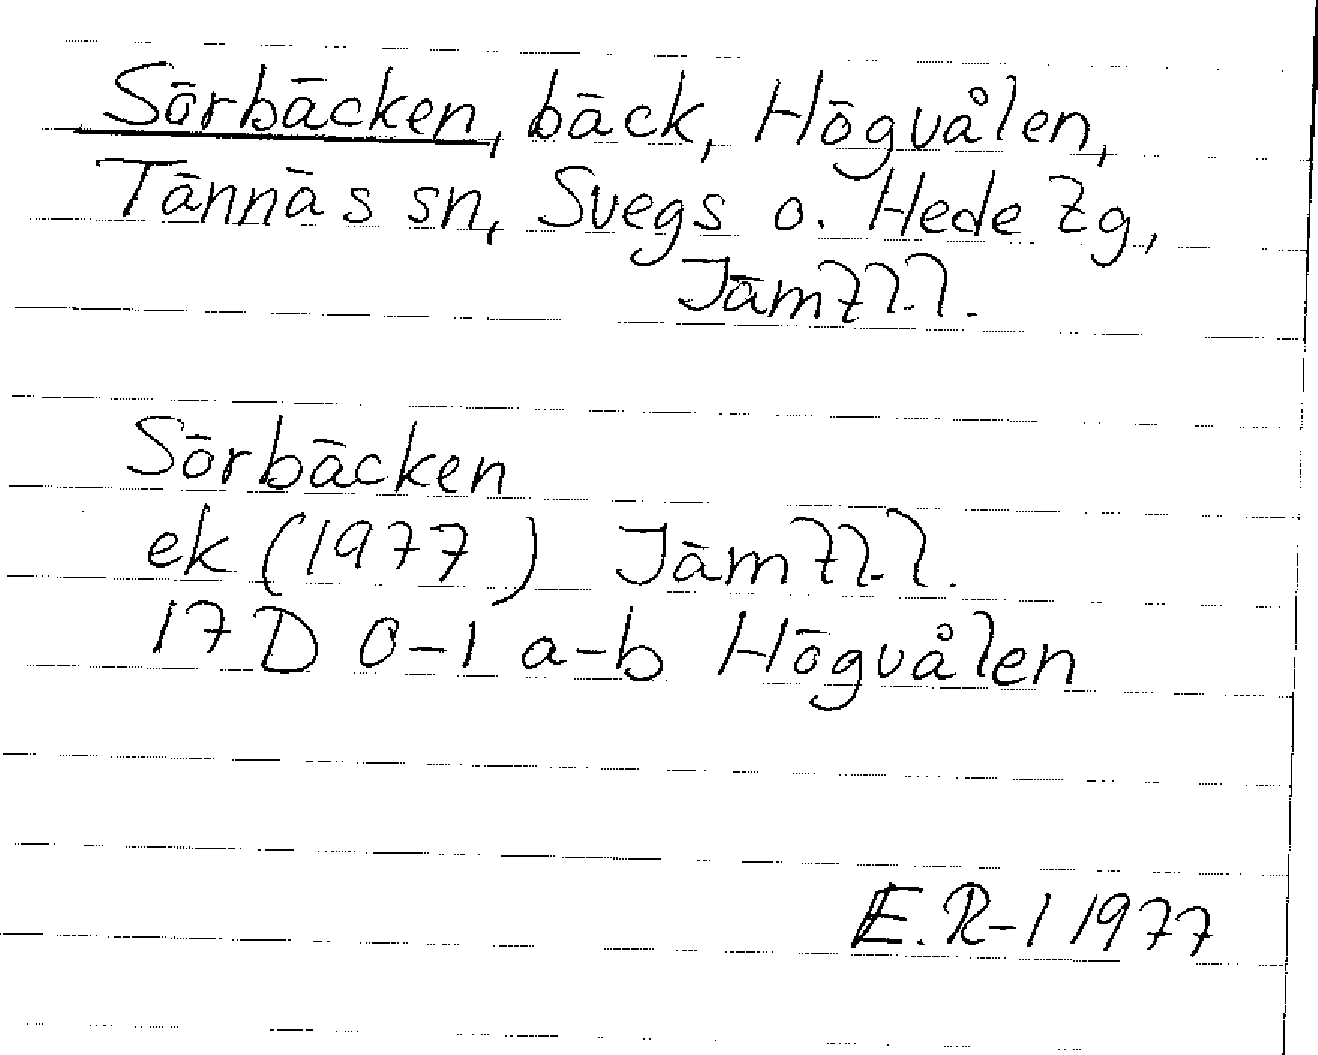 Sörbäcken, bäck, Högvålen,
Tännäs sn, Svegs o. Hede tg,
Jämtl.l.
Sörbäcken
ek (1977) Jämtl.l.
17D 0-1 a-b Högvålen
E.R-l 1977